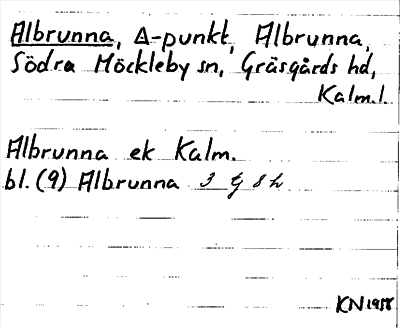 Albrunna, Δ-punkt, Albrunna,
Södra Möckleby sn, Gräsgårds hd,
Kalm.l.
Albrunna ek Kalm.
bl. (9) Albrunna 3 g 8 h
KN 1958